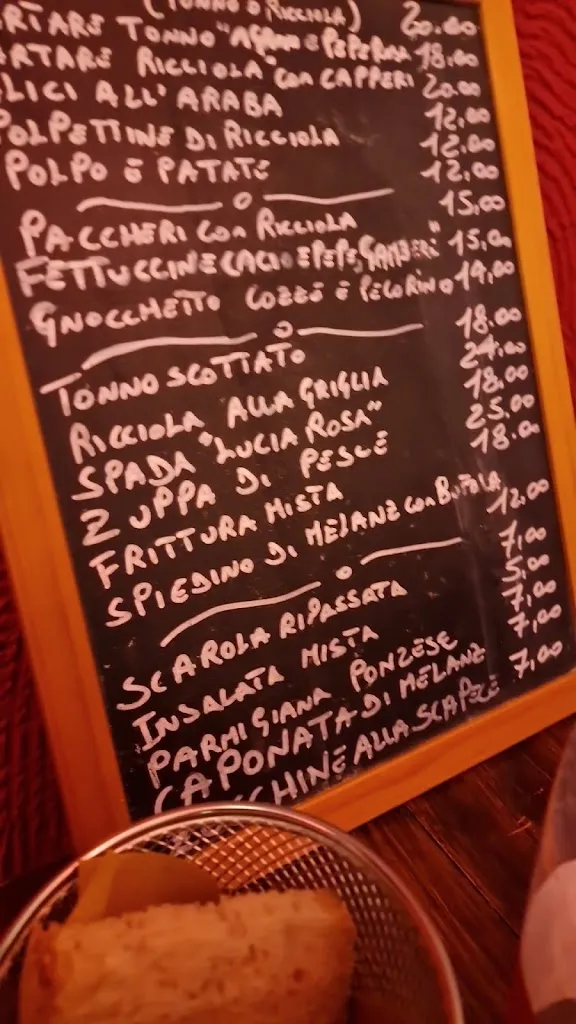 (TONNO O RICCIOLA) 20.00
RTARE TONNO "AGRUMI E PEPEROA 18.00
RTARE RICCIOLA" con CAPPERI 20.00
LICI ALL'ARABA 12.00
POLPETTINE DI RICCIOLA 12.00
POLPO E PATATE 12.00
PACCHERI con RICCIOLA 15,00
FETTUCCINE CACIO E PEPE, GAMBERI" 15,00
GNOCCHETTO COZZE E PECORINO 14,00
TONNO SCOTTATO 18.00
RICCIOLA ALLA GRIGLIA 24.00
SPADA "LUCIA ROSA" 18.00
ZUPPA DI PESCE 25.00
FRITTURA MISTA 18.00
SPIEDINO DI MELANZ con BUFOLA 12.00
SCAROLA RIPASSATA 7,00
INSALATA MISTA 5,00
PARMIGIANA PONZESE 7,00
CAPONATA DI MELANZ 7,00
CCHINE ALLA SCAPECE 7,00